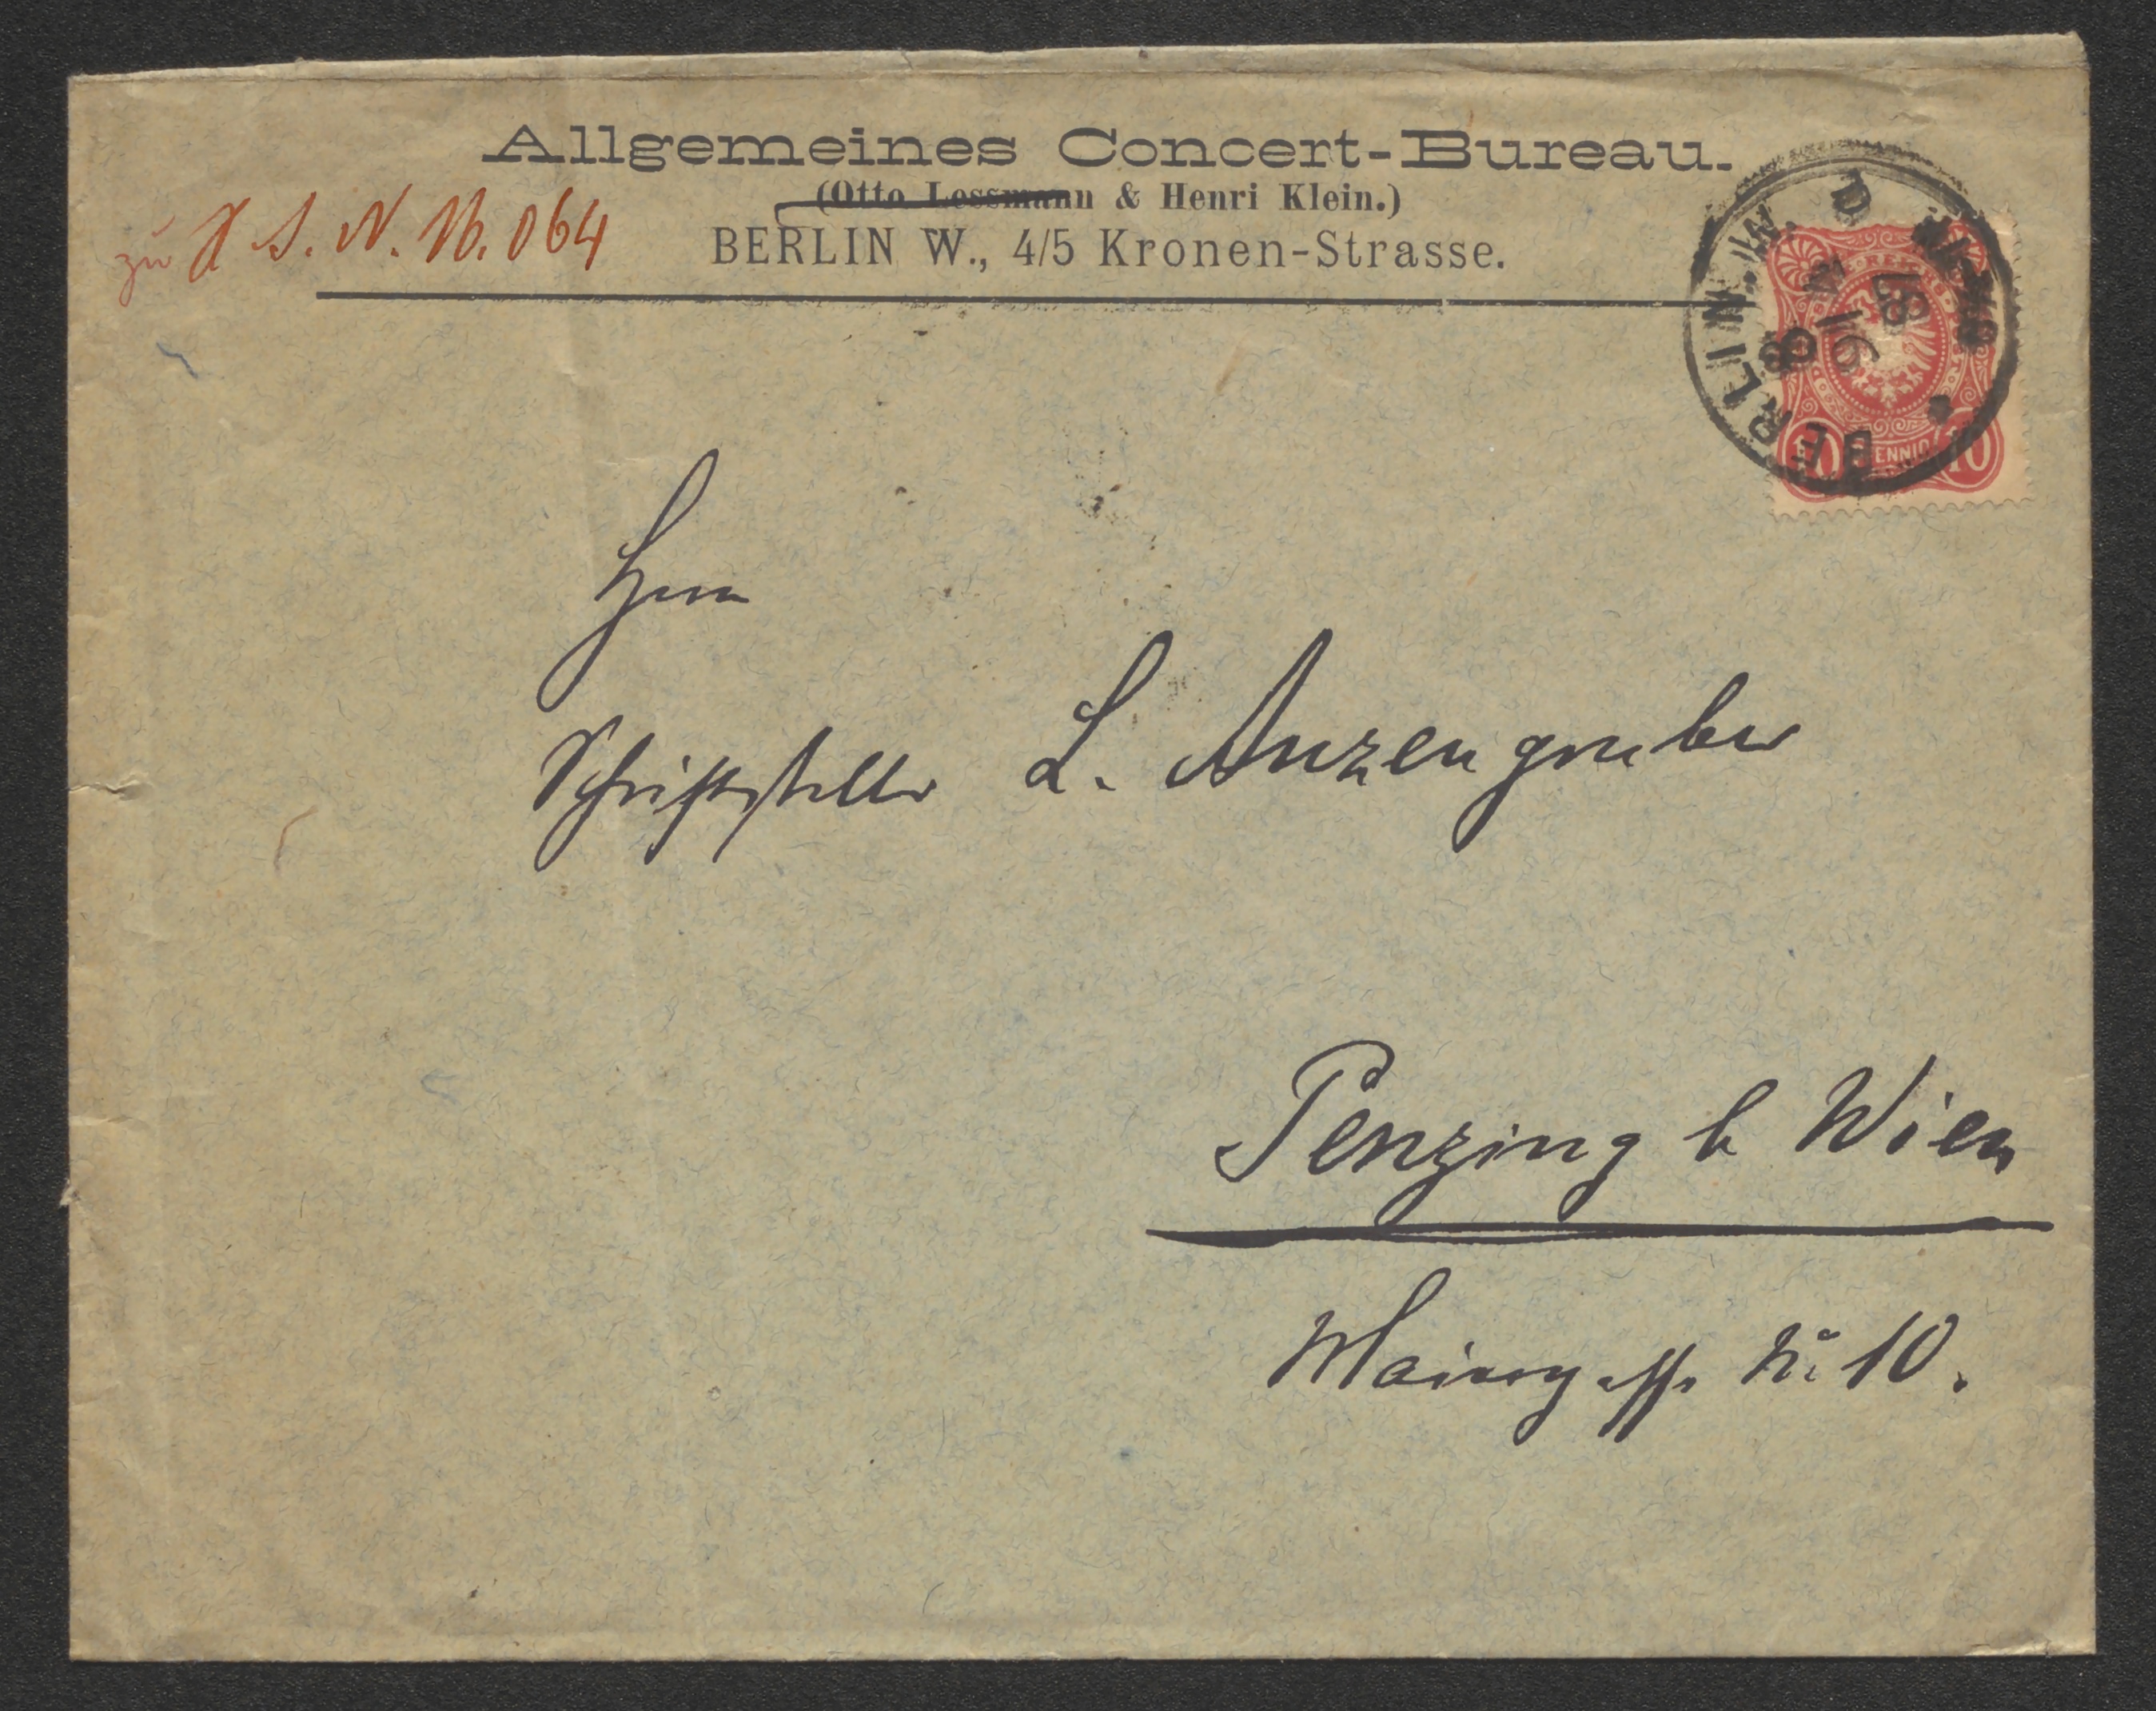 Allgemeines Concert-Bureau.
(Otto Lessmann & Henri Klein.)
BERLIN W., 4/5 Kronen-Strasse.
zu
I.N. 16.064
BERLIN.W.
PFENNIG
10
Herrn
Schriftsteller L. Anzengruber
Penzing b Wien
No 10.